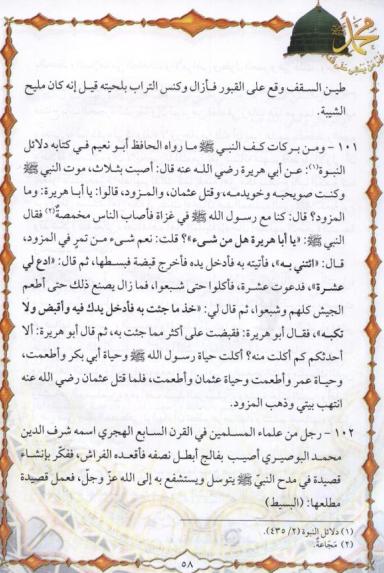 محمد
طين السقف وقع على القبور فأزال وكنس التراب بلحيته قيل إنه كان مليح
الشيبة.
١٠١ - ومن بركات كف النبي ﷺ ما رواه الحافظ أبو نعيم في كتابه دلائل
النبوة(١): عن أبي هريرة رضي الله عنه قال: أصبت بثلاث، موت النبي ﷺ
وكنت صويحبه وخويدمه، وقتل عثمان، والمزود، قالوا: يا أبا هريرة: وما
المزود؟ قال: كنا مع رسول الله ﷺ في غزاة فأصاب الناس مخمصة(٢) فقال
النبي ﷺ: «يا أبا هريرة هل من شيء»؟ قلت: نعم شيء من تمر في المزود،
قال: «ائتني به»، فأتيته به فأدخل يده فأخرج قبضة فبسطها، ثم قال: «ادع لي
عشرة»، فدعوت عشرة، فأكلوا حتى شبعوا، فما زال يصنع ذلك حتى أطعم
الجيش كلهم وشبعوا، ثم قال لي: «خذ ما جئت به فأدخل يدك فيه وأقبض ولا
تكبه»، فقال أبو هريرة: فقبضت على أكثر مما جئت به، ثم قال أبو هريرة: ألا
أحدثكم كم أكلت منه؟ أكلت حياة رسول الله ﷺ وحياة أبي بكر وأطعمت،
وحياة عمر وأطعمت وحياة عثمان وأطعمت، فلما قتل عثمان رضي الله عنه
انتهب بيتي وذهب المزود.
١٠٢ - رجل من علماء المسلمين في القرن السابع الهجري اسمه شرف الدين
محمد البوصيري أصيب بفالج أبطل نصفه فأقعده الفراش، ففكّر بإنشاء
قصيدة في مدح النبيّ ﷺ يتوسل ويستشفع به إلى الله عزّ وجلّ، فعمل قصيدة
مطلعها: (البسيط)
(١) دلائل النبوة (٢/ ٤٣٥).
(٢) مَجَاعة.
٥٨